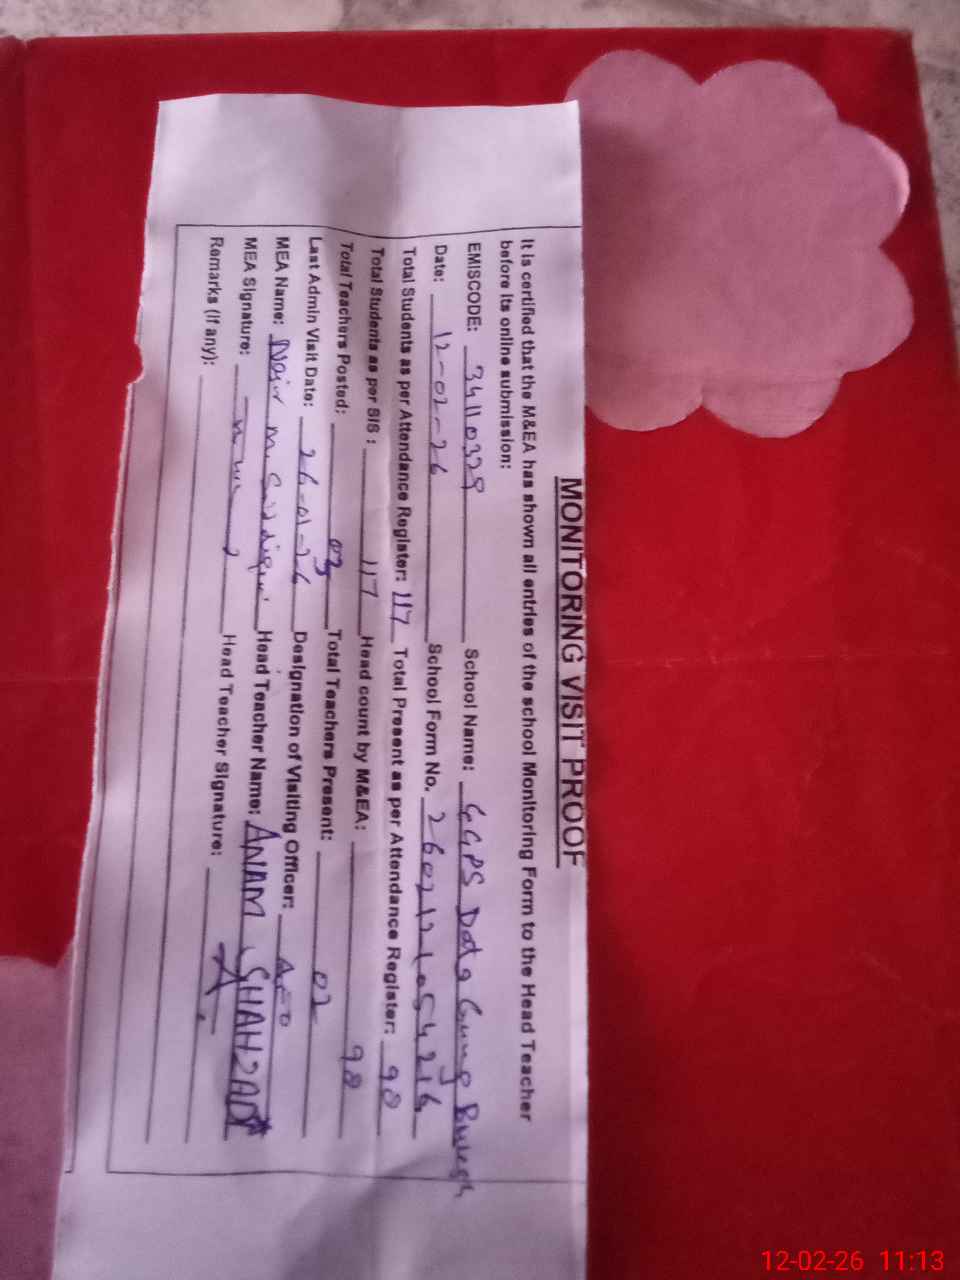 MONITORING VISIT PROOF
It is certified that the M&EA has shown all entries of the school Monitoring Form to the Head Teacher
before its online submission:
EMISCODE: 34110329 School Name: GGPS Data Gung Buksh
Date: 12-02-26 School Form No. 2602121054216
Total Students as per Attendance Register: 117 Total Present as per Attendance Register: 98
Total Students as per SIS : 117 Head count by M&EA: 98
Total Teachers Posted: 03 Total Teachers Present: 02
Last Admin Visit Date: 26-01-26 Designation of Visiting Officer: AEO
MEA Name: M. Siddiqui Head Teacher Name: ANAM SHAHZAD
MEA Signature: Head Teacher Signature:
Remarks (if any):
12-02-26 11:13